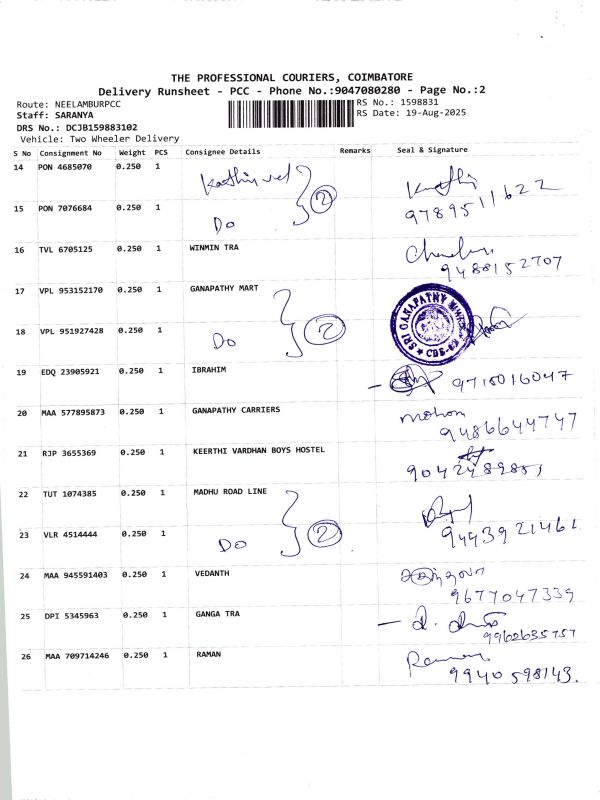 THE PROFESSIONAL COURIERS, COIMBATORE
Delivery Runsheet - PCC - Phone No.:9047080280 - Page No.:2
Route: NEELAMBURPCC
RS No.: 1598831
Staff: SARANYA
RS Date: 19-Aug-2025
DRS No.: DCJB159883102
Vehicle: Two Wheeler Delivery
S No Consignment No Weight PCS Consignee Details Remarks Seal & Signature
14 PON 4685070 0.250 1 2
9789511622
15 PON 7076684 0.250 1 Do
16 TVL 6705125 0.250 1 WINMIN TRA
9488152707
17 VPL 953152170 0.250 1 GANAPATHY MART
18 VPL 951927428 0.250 1 Do 2
SRI GANAPATHY
19 EDQ 23905921 0.250 1 IBRAHIM 9715016047
20 MAA 577895873 0.250 1 GANAPATHY CARRIERS mohan
9486644747
21 RJP 3655369 0.250 1 KEERTHI VARDHAN BOYS HOSTEL
22 TUT 1074385 0.250 1 MADHU ROAD LINE
23 VLR 4514444 0.250 1 Do 2 9443921461
24 MAA 945591403 0.250 1 VEDANTH
9677047339
25 DPI 5345963 0.250 1 GANGA TRA
9962635757
26 MAA 709714246 0.250 1 RAMAN Raman
9940598143.